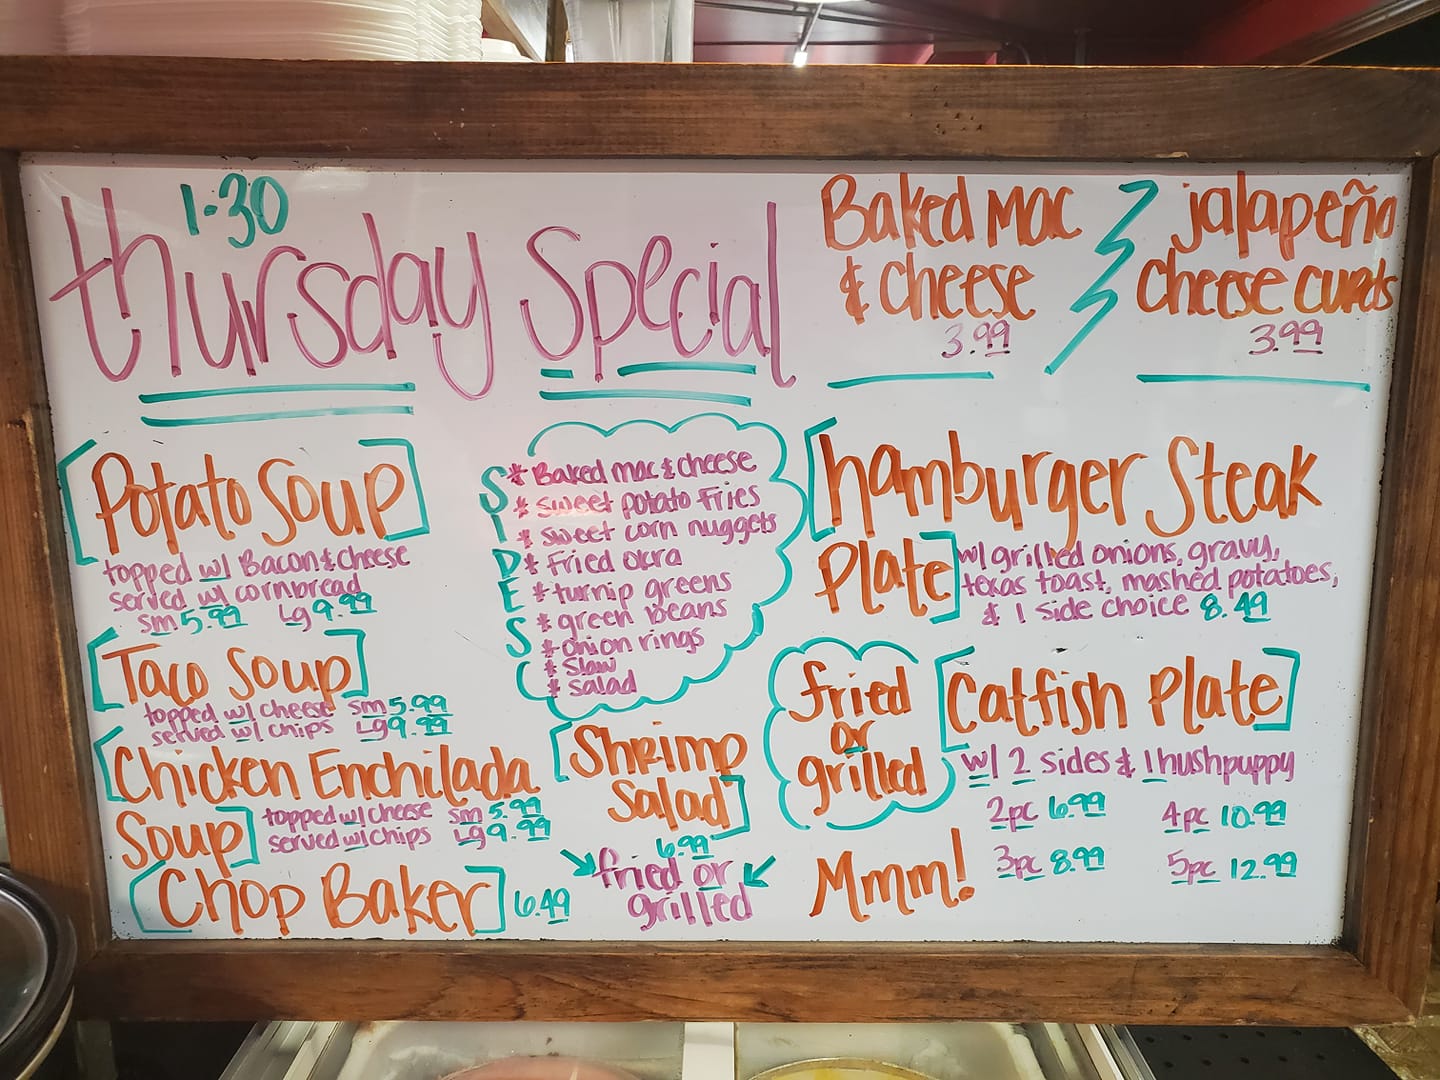 1-30
thursday Special
Baked mac
& cheese
3.99
jalapeño
cheese curds
3.99
[Potato Soup]
topped w/ Bacon & cheese
served w/ cornbread
sm 5.99 Lg 9.99
[Taco Soup]
topped w/ cheese sm 5.99
served w/ chips Lg 9.99
[Chicken Enchilada
Soup]
topped w/ cheese sm 5.99
served w/ chips Lg 9.99
[Chop Baker] 6.49
SIDES
* Baked mac & cheese
* sweet potato fries
* sweet corn nuggets
* Fried okra
* turnip greens
* green beans
* onion rings
* Slaw
* Salad
[Shrimp
Salad]
6.99
fried or
grilled
[hamburger Steak
Plate]
w/ grilled onions, gravy,
texas toast, mashed potatoes,
& 1 side choice 8.49
fried
or
grilled
[Catfish Plate]
w/ 2 sides & 1 hushpuppy
2pc 6.99 4pc 10.99
3pc 8.99 5pc 12.99
Mmm!